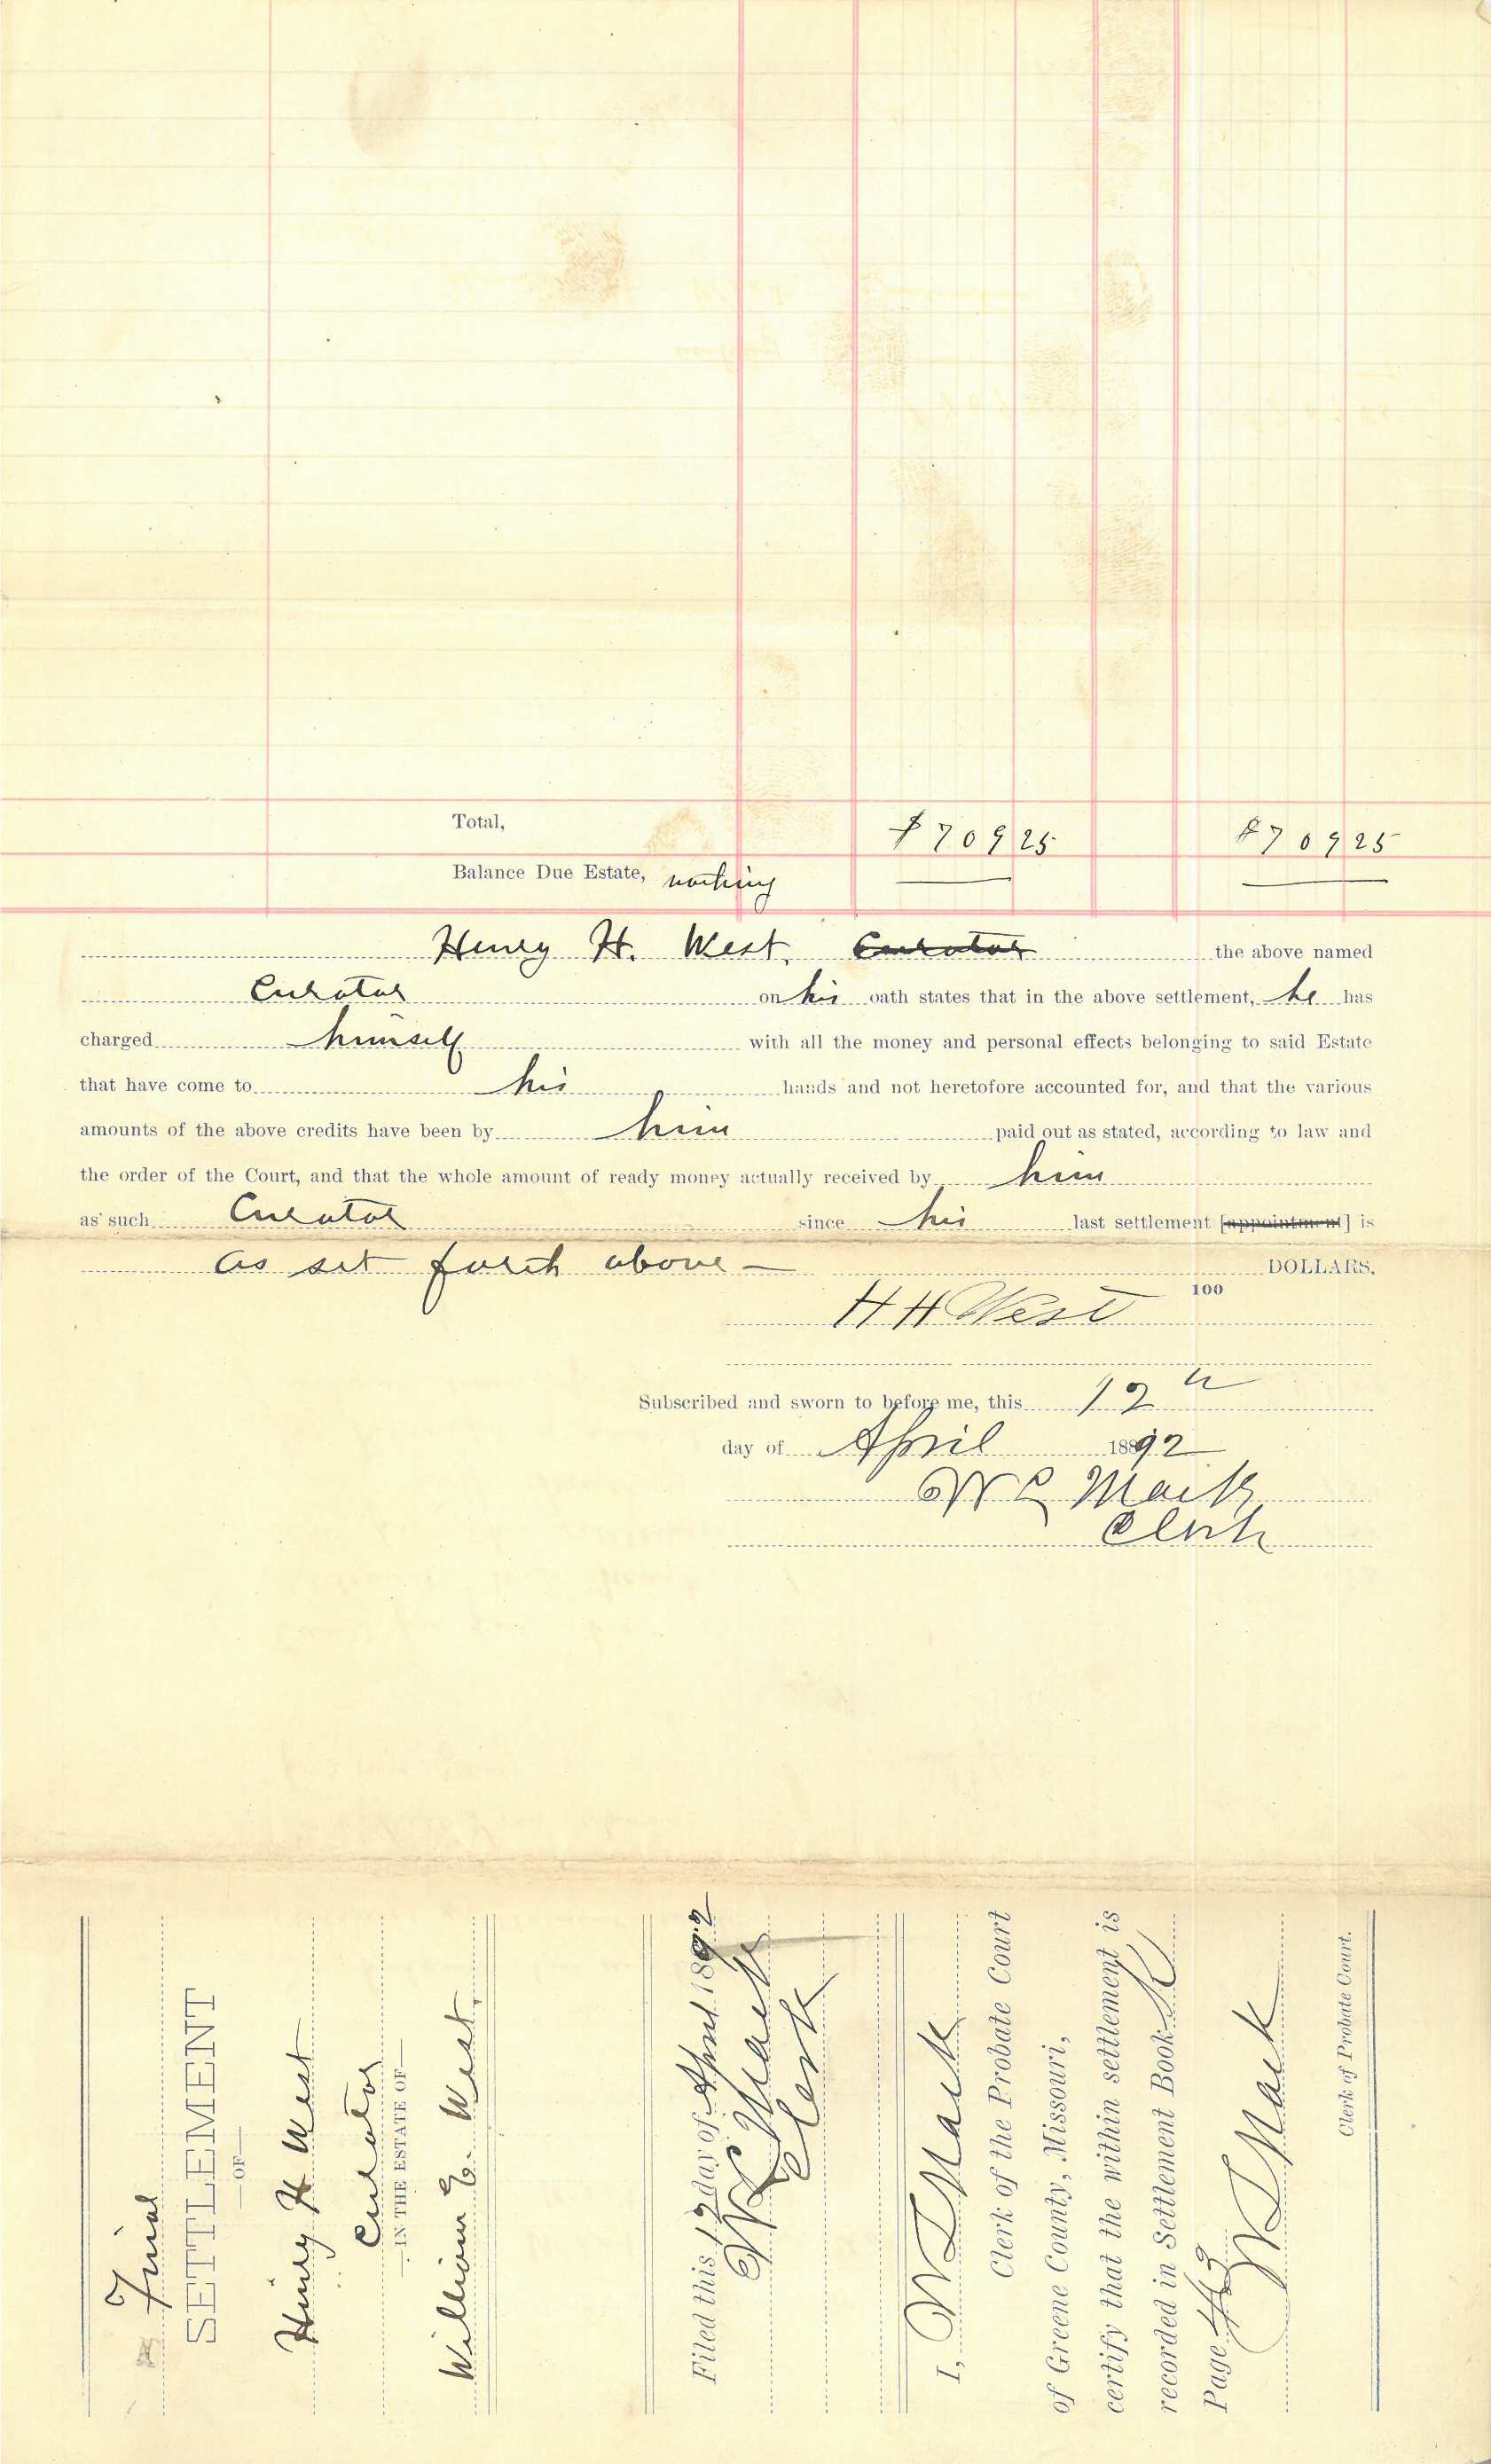 Total, $709 25 $709 25
Balance Due Estate, nothing
Henry H. West, Curator the above named
Curator on his oath states that in the above settlement, he has
charged himself with all the money and personal effects belonging to said Estate
that have come to his hands and not heretofore accounted for, and that the various
amounts of the above credits have been by him paid out as stated, according to law and
the order of the Court, and that the whole amount of ready money actually received by him
as such Curator since his last settlement [appointment] is
as set forth above — DOLLARS.
100
H H West
Subscribed and sworn to before me, this 12th
day of April 1892
W L Mack
Clerk
Final
SETTLEMENT
—OF—
Henry H West
Curator
—IN THE ESTATE OF—
William E. West.
Filed this 12 day of April 1892
W L Mack
Clerk
I, W L Mack
Clerk of the Probate Court
of Greene County, Missouri,
certify that the within settlement is
recorded in Settlement Book K
Page
W L Mack
Clerk of Probate Court.